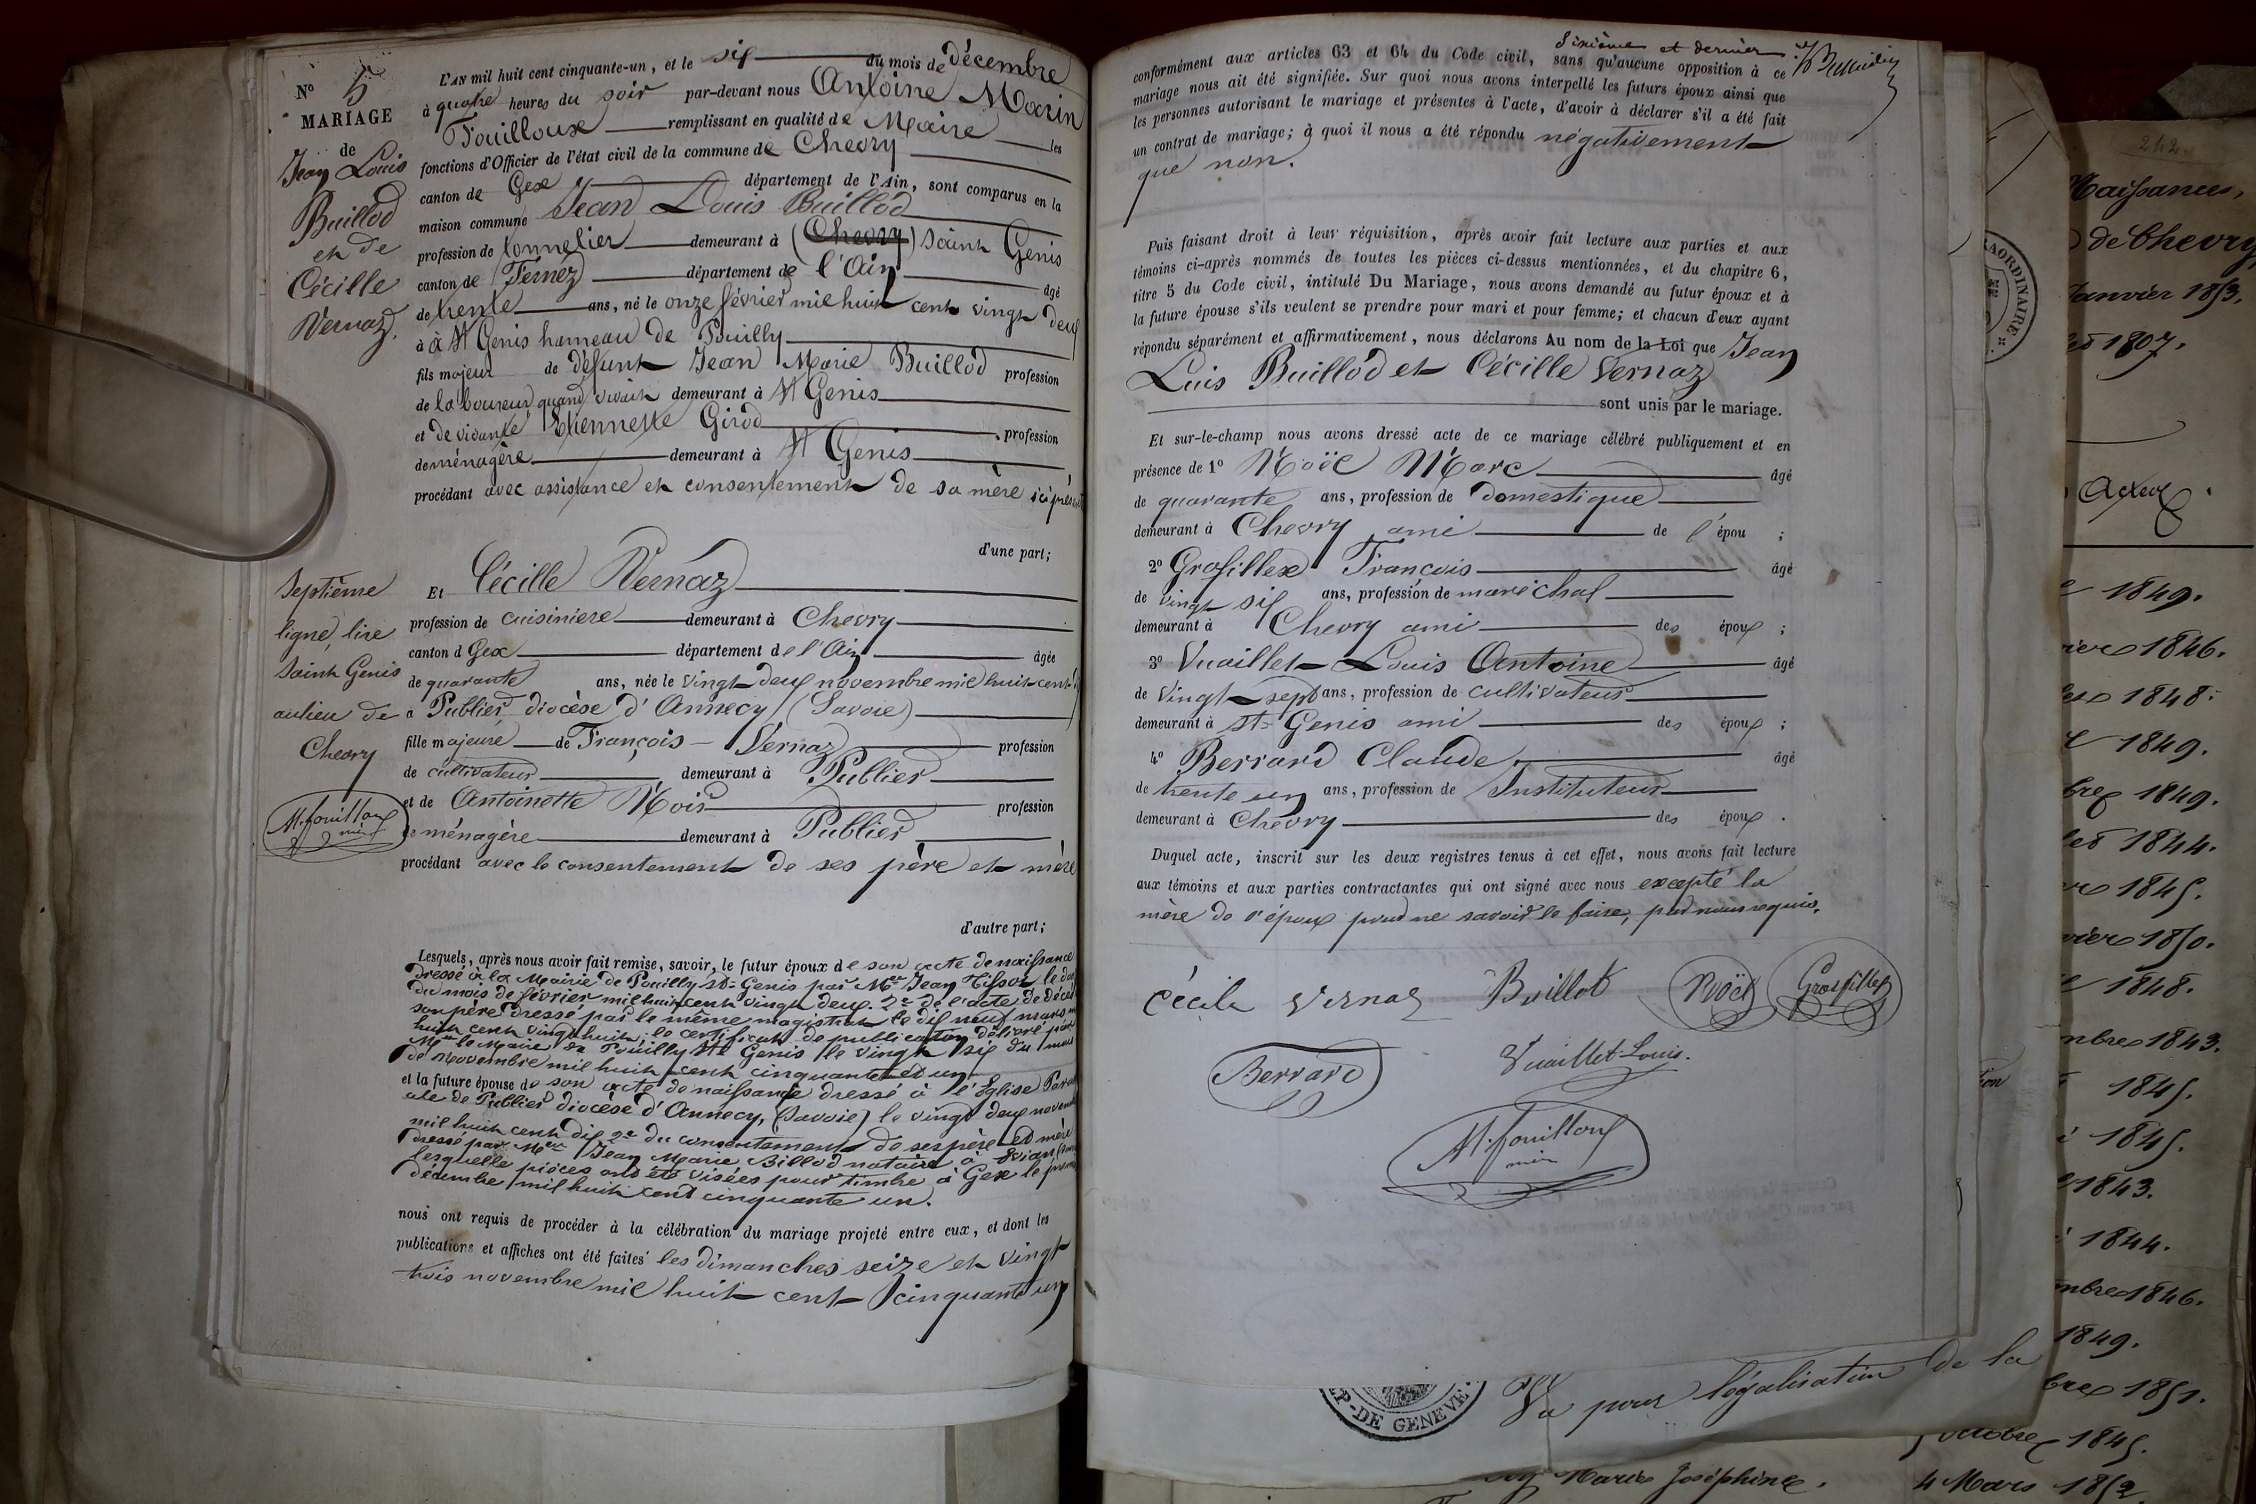 N° 5
MARIAGE
de
Jean Louis
Buillod
et de
Cécille
Vernaz.
L'AN mil huit cent cinquante-un, et le six du mois de décembre
à quatre heures du soir par-devant nous Antoine Marin
Fouilloux remplissant en qualité de Maire les
fonctions d'Officier de l'état civil de la commune de Chevry
canton de Gex département de l'Ain, sont comparus en la
maison commune Jean Louis Buillod
profession de tonnelier demeurant à (Chevry) Saint Genis
canton de Fernez département de l'Ain âgé
de trente ans, né le onze février mil huit cent vingt deux
à à St Genis hameau de Pouilly
fils majeur de défunt Jean Marie Buillod profession
de laboureur quand vivait demeurant à St Genis
et de vivante Etiennette Girod profession
de ménagère demeurant à St Genis
procédant avec assistance et consentement de sa mère ici présente
d'une part;
Septième
ligne, lire
Saint Genis
au lieu de
Chevry
M. fouilloux
mire
Et Cécille Vernaz
profession de cuisiniere demeurant à Chevry
canton d Gex département de l'Ain âgée
de quarante ans, née le vingt deux novembre mil huit cent dix
à Publier diocèse d'Annecy (Savoie)
fille majeure de François Vernaz profession
de cultivateur demeurant à Publier
et de Antoinette Mois profession
de ménagère demeurant à Publier
procédant avec le consentement de ses père et mère
d'autre part;
Lesquels, après nous avoir fait remise, savoir, le futur époux de son acte de naissance
dressé à la Mairie de Pouilly St Genis par Mr Jean Tissot le
du mois de février mil huit cent vingt deux. 2° de l'acte de décès
son père dressé par le même magistrat le dix neuf mars
huit cent vingt huit, le certificat de publication délivré par
Mr le Maire de Pouilly St Genis le vingt six du mois
de novembre mil huit cent cinquante et un
et la future épouse de son acte de naissance dressé à l'Eglise
de Publier diocèse d'Annecy, (Savoie) le vingt deux
mil huit cent dix 2° du consentement de ses père et mère
dressé par Me Jean Marie Billod notaire à Evian
lesquelle pièces ont été visées pour timbre à Gex le
décembre mil huit cent cinquante un.
nous ont requis de procéder à la célébration du mariage projeté entre eux, et dont les
publications et affiches ont été faites les dimanches seize et vingt
trois novembre mil huit cent cinquante un
Sixième et dernier
conformément aux articles 63 et 64 du Code civil, sans qu'aucune opposition à ce
mariage nous ait été signifiée. Sur quoi nous avons interpellé les futurs époux ainsi que
les personnes autorisant le mariage et présentes à l'acte, d'avoir à déclarer s'il a été fait
un contrat de mariage; à quoi il nous a été répondu négativement
que non.
Puis faisant droit à leur réquisition, après avoir fait lecture aux parties et aux
témoins ci-après nommés de toutes les pièces ci-dessus mentionnées, et du chapitre 6,
titre 5 du Code civil, intitulé Du Mariage, nous avons demandé au futur époux et à
la future épouse s'ils veulent se prendre pour mari et pour femme; et chacun d'eux ayant
répondu séparément et affirmativement, nous déclarons Au nom de la Loi que Jean
Luis Buillod et Cécille Vernaz
sont unis par le mariage.
Et sur-le-champ nous avons dressé acte de ce mariage célébré publiquement et en
présence de 1° Noël Marc âgé
de quarante ans, profession de domestique
demeurant à Chevry ami de l'épou ;
2° Grosfillex François âgé
de vingt six ans, profession de maréchal
demeurant à Chevry ami des époux ;
3° Vuaillet Louis Antoine âgé
de vingt sept ans, profession de cultivateur
demeurant à St Genis ami des époux ;
4° Berrard Claude âgé
de trente un ans, profession de Instituteur
demeurant à Chevry des époux .
Duquel acte, inscrit sur les deux registres tenus à cet effet, nous avons fait lecture
aux témoins et aux parties contractantes qui ont signé avec nous excepté la
mère de l'époux pour ne savoir le faire, par nous requis.
Cécile Vernaz Buillot Noël Grosfillex
Berrard Vuaillet Louis.
M. fouilloux
mire
P. DE GENEVE
Vu pour légalisation de la
Marie Joséphine. 4 Mars 1852
242
Naissances,
de Chevry
Janvier 1853.
1807.
RAORDINAIRE
Actes
1849.
1846.
1848.
1849.
1849.
1844.
1845.
1850.
1848.
1843.
1845.
1845.
1843.
1844.
1846.
1849.
1851.
octobre 1845.